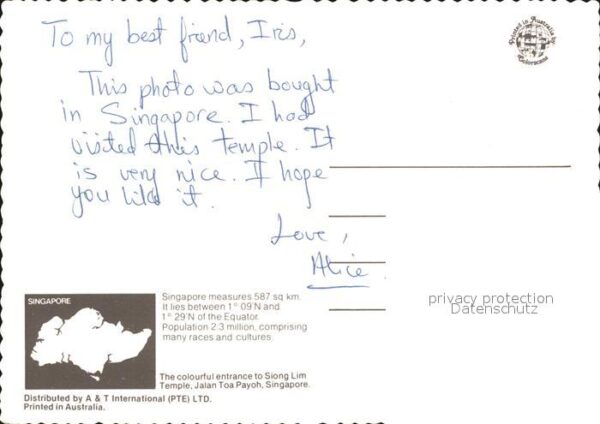 To my best friend, Iris,
This photo was bought
in Singapore. I had
visited this temple. It
is very nice. I hope
you like it.
Love,
Alice.
Printed in Australia by
Colorscans
privacy protection
Datenschutz
SINGAPORE
Singapore measures 587 sq km.
It lies between 1° 09'N and
1° 29'N of the Equator.
Population 2.3 million, comprising
many races and cultures.
The colourful entrance to Siong Lim
Temple, Jalan Toa Payoh, Singapore.
Distributed by A & T International (PTE) LTD.
Printed in Australia.